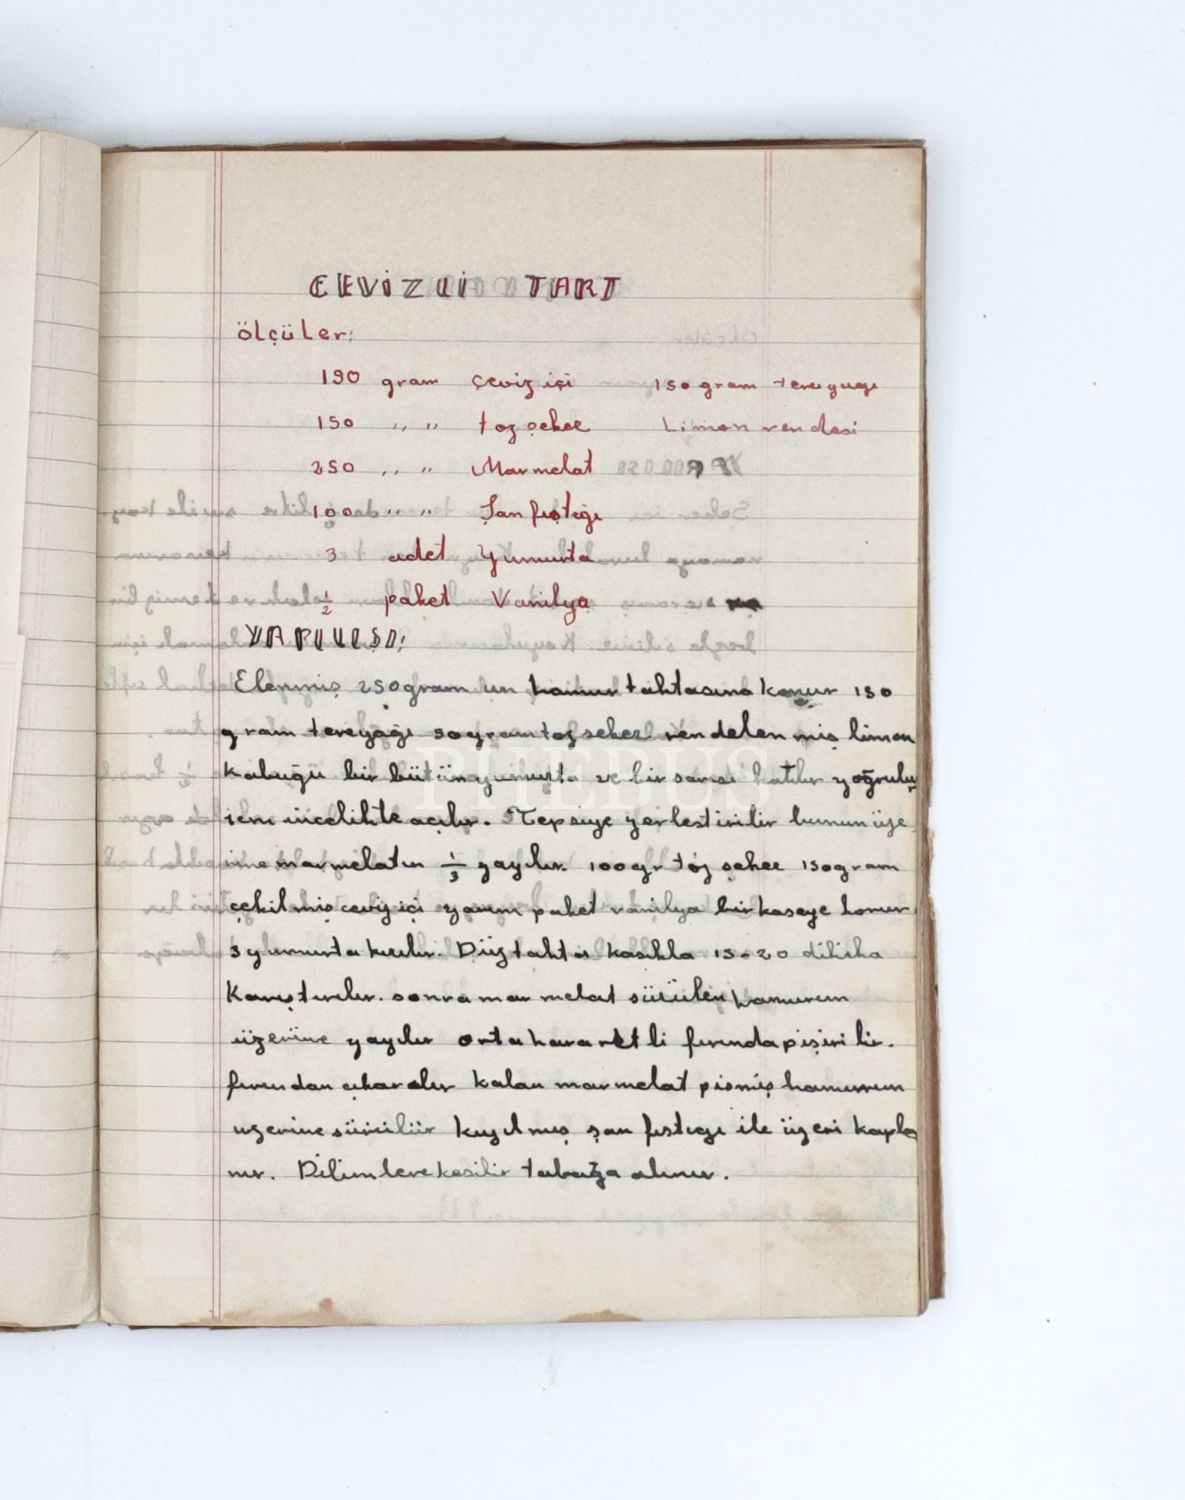 CEVİZLİ TART
ölçüler:
190 gram çeviz içi 150 gram tereyagı
150 ,, ,, toz şeker Limon rendesi
250 ,, ,, Marmelat
100 ,, ,, Şan fıstıgı
3 adet yumurta
1/2 paket Vanilya
YAPILIŞI:
Elenmiş 250 gram un hamur tahtasına konur 150
gram tereyağı 50 gram toz seker rendelenmiş limon
Kabuğu bir bütün yumurta ve bir sarısı katılır yoğrulur
incelikte açılır. Tepsiye yerlestirilir bunun üze
rine marmelatın 1/3 yayılır. 100 gr toz şeker 150 gram
çekilmiş ceviz içi yarım paket vanilya bir kaseye konur
3 yumurta kırılır. Düz tahta kasıkla 15-20 dikika
Karıştırılır. sonra marmelat sürülen hamurun
üzerine yayılır orta hararetli fırında pişirilir.
fırından çıkarılır kalan marmelat pismiş hamurun
uzerine sürülür kıyılmış şan fıstıgı ile üzeri kapla
nır. Dilimlere kesilir tabağa alınır.
PHEBUS